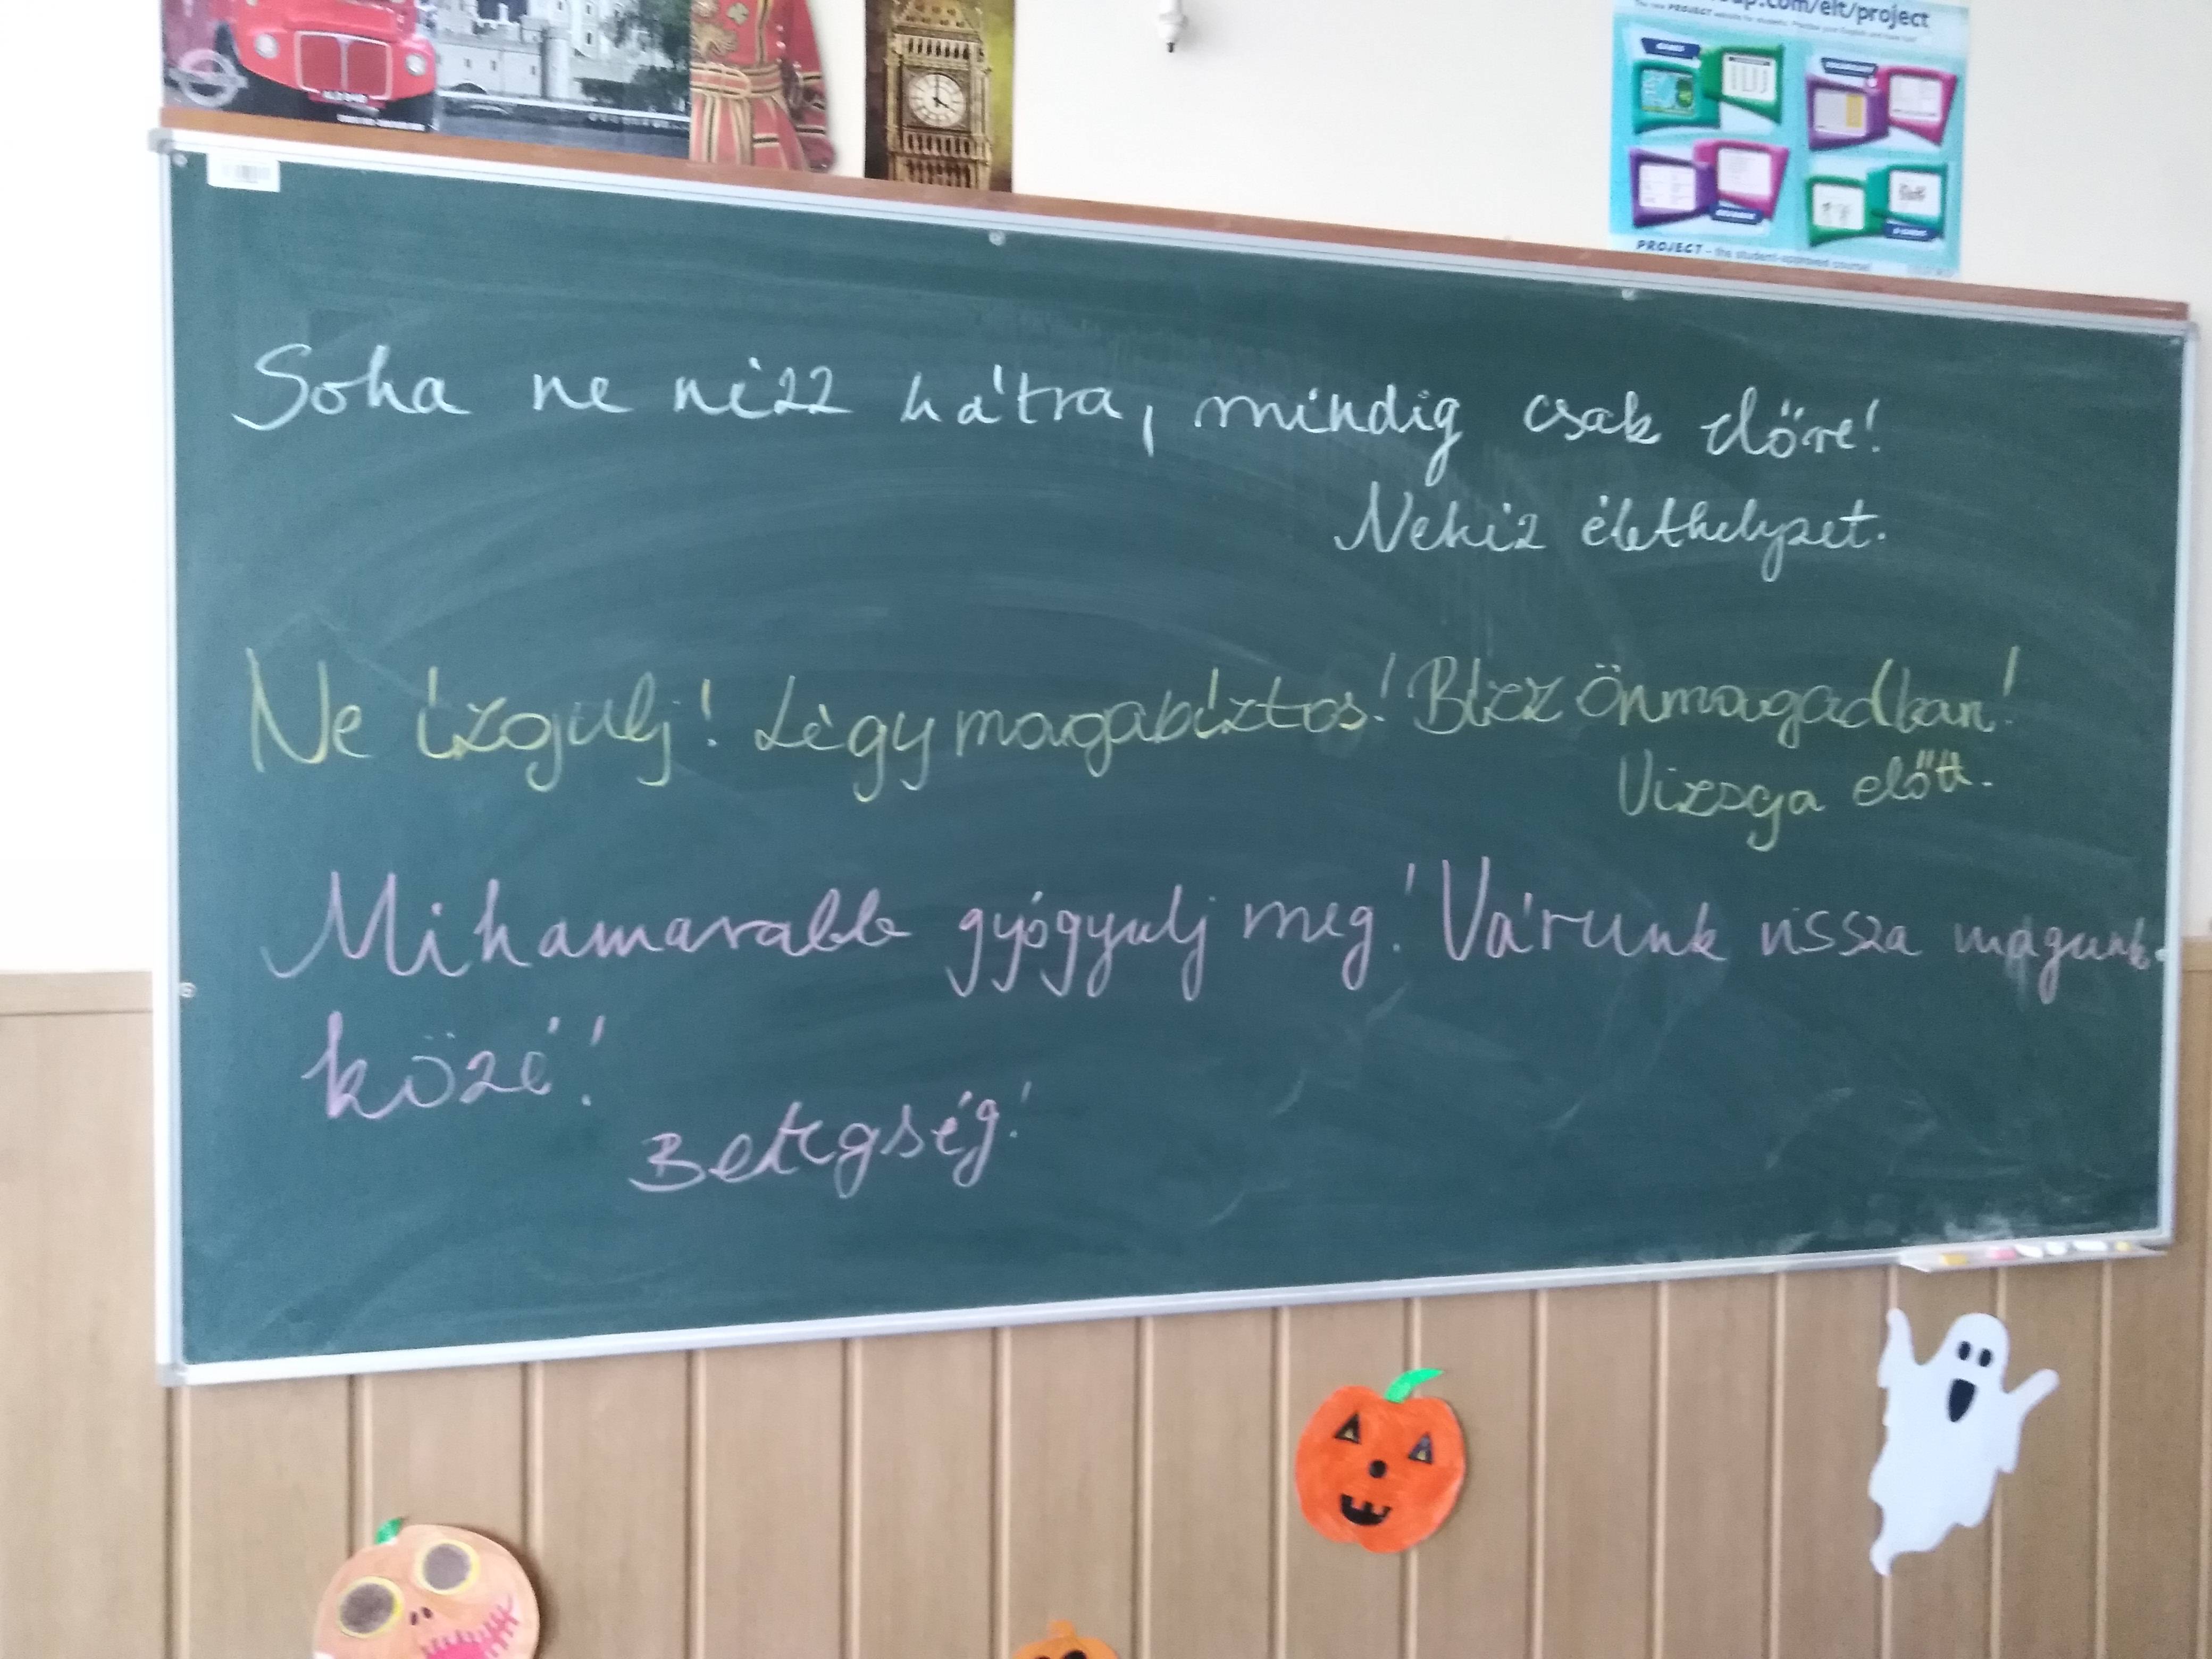 up.com/elt/project
PROJECT - the student-approved course!
Soha ne nézz hátra, mindig csak előre!
Nehéz élethelyzet.
Ne izgulj! Légy magabiztos! Bízz önmagadban!
Vizsga előtt.
Mihamarabb gyógyulj meg! Várunk vissza magunk
közé!
Betegség!